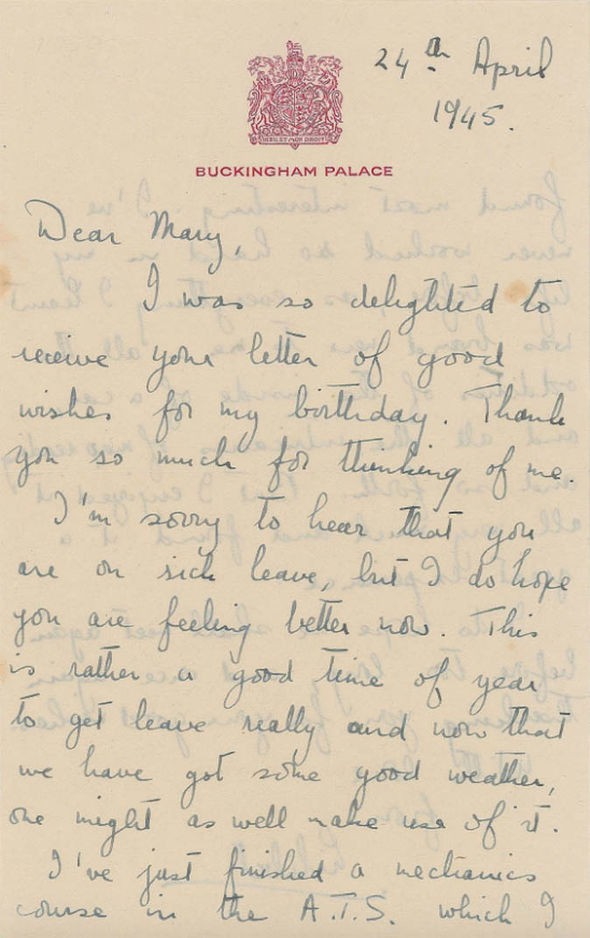 24th April
1945.
BUCKINGHAM PALACE
Dear Mary,
I was so delighted to
receive your letter of good
wishes for my birthday. Thank
you so much for thinking of me.
I'm sorry to hear that you
are on sick leave, but I do hope
you are feeling better now. This
is rather a good time of year
to get leave really and now that
we have got some good weather,
one might as well make use of it.
I've just finished a mechanics
course in the A.T.S. which I